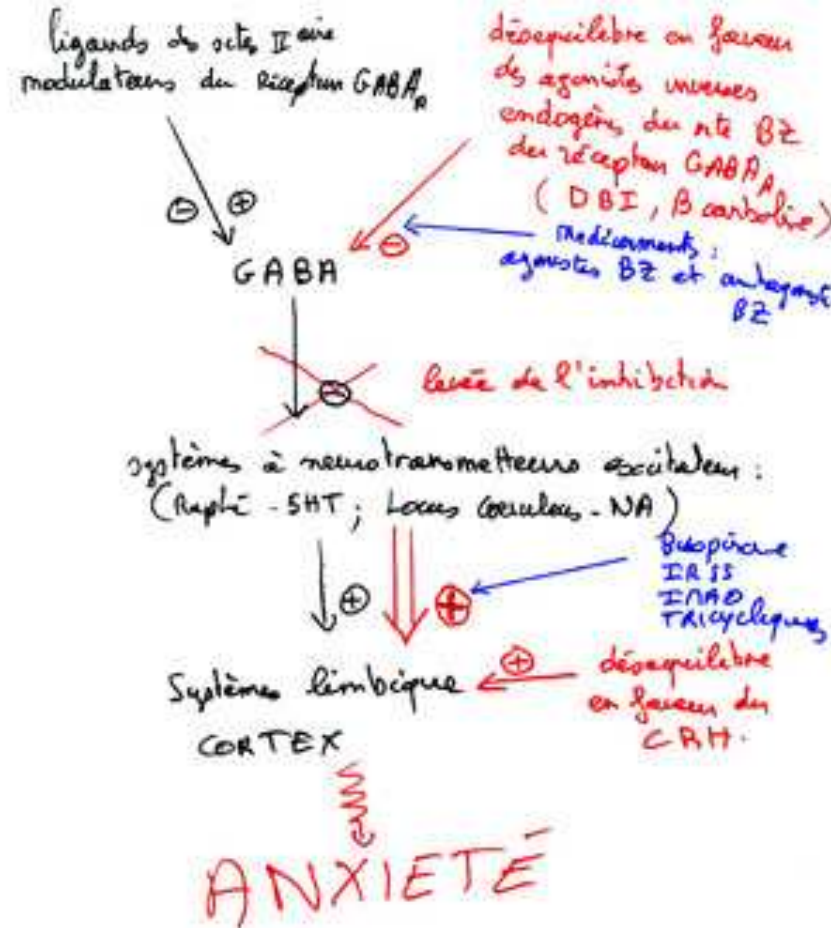 ligands des sites II aire
modulateurs du récepteur GABA A
déséquilibre en faveur
des agonistes inverses
endogènes du site BZ
du récepteur GABA A
(DBI, B carboline)
⊖ ⊕
⊖
médicaments :
agonistes BZ et antagonist
BZ
GABA
⊖
levée de l'inhibition
systèmes à neurotransmetteurs excitateurs :
(Raphé - 5HT ; Locus coeruleus - NA)
Buspirone
IRSS
IMAO
TRICYCLIQUES
⊕ ⊕
⊕
déséquilibre
en faveur du
CRH.
Systèmes limbique
CORTEX
ANXIETÉ